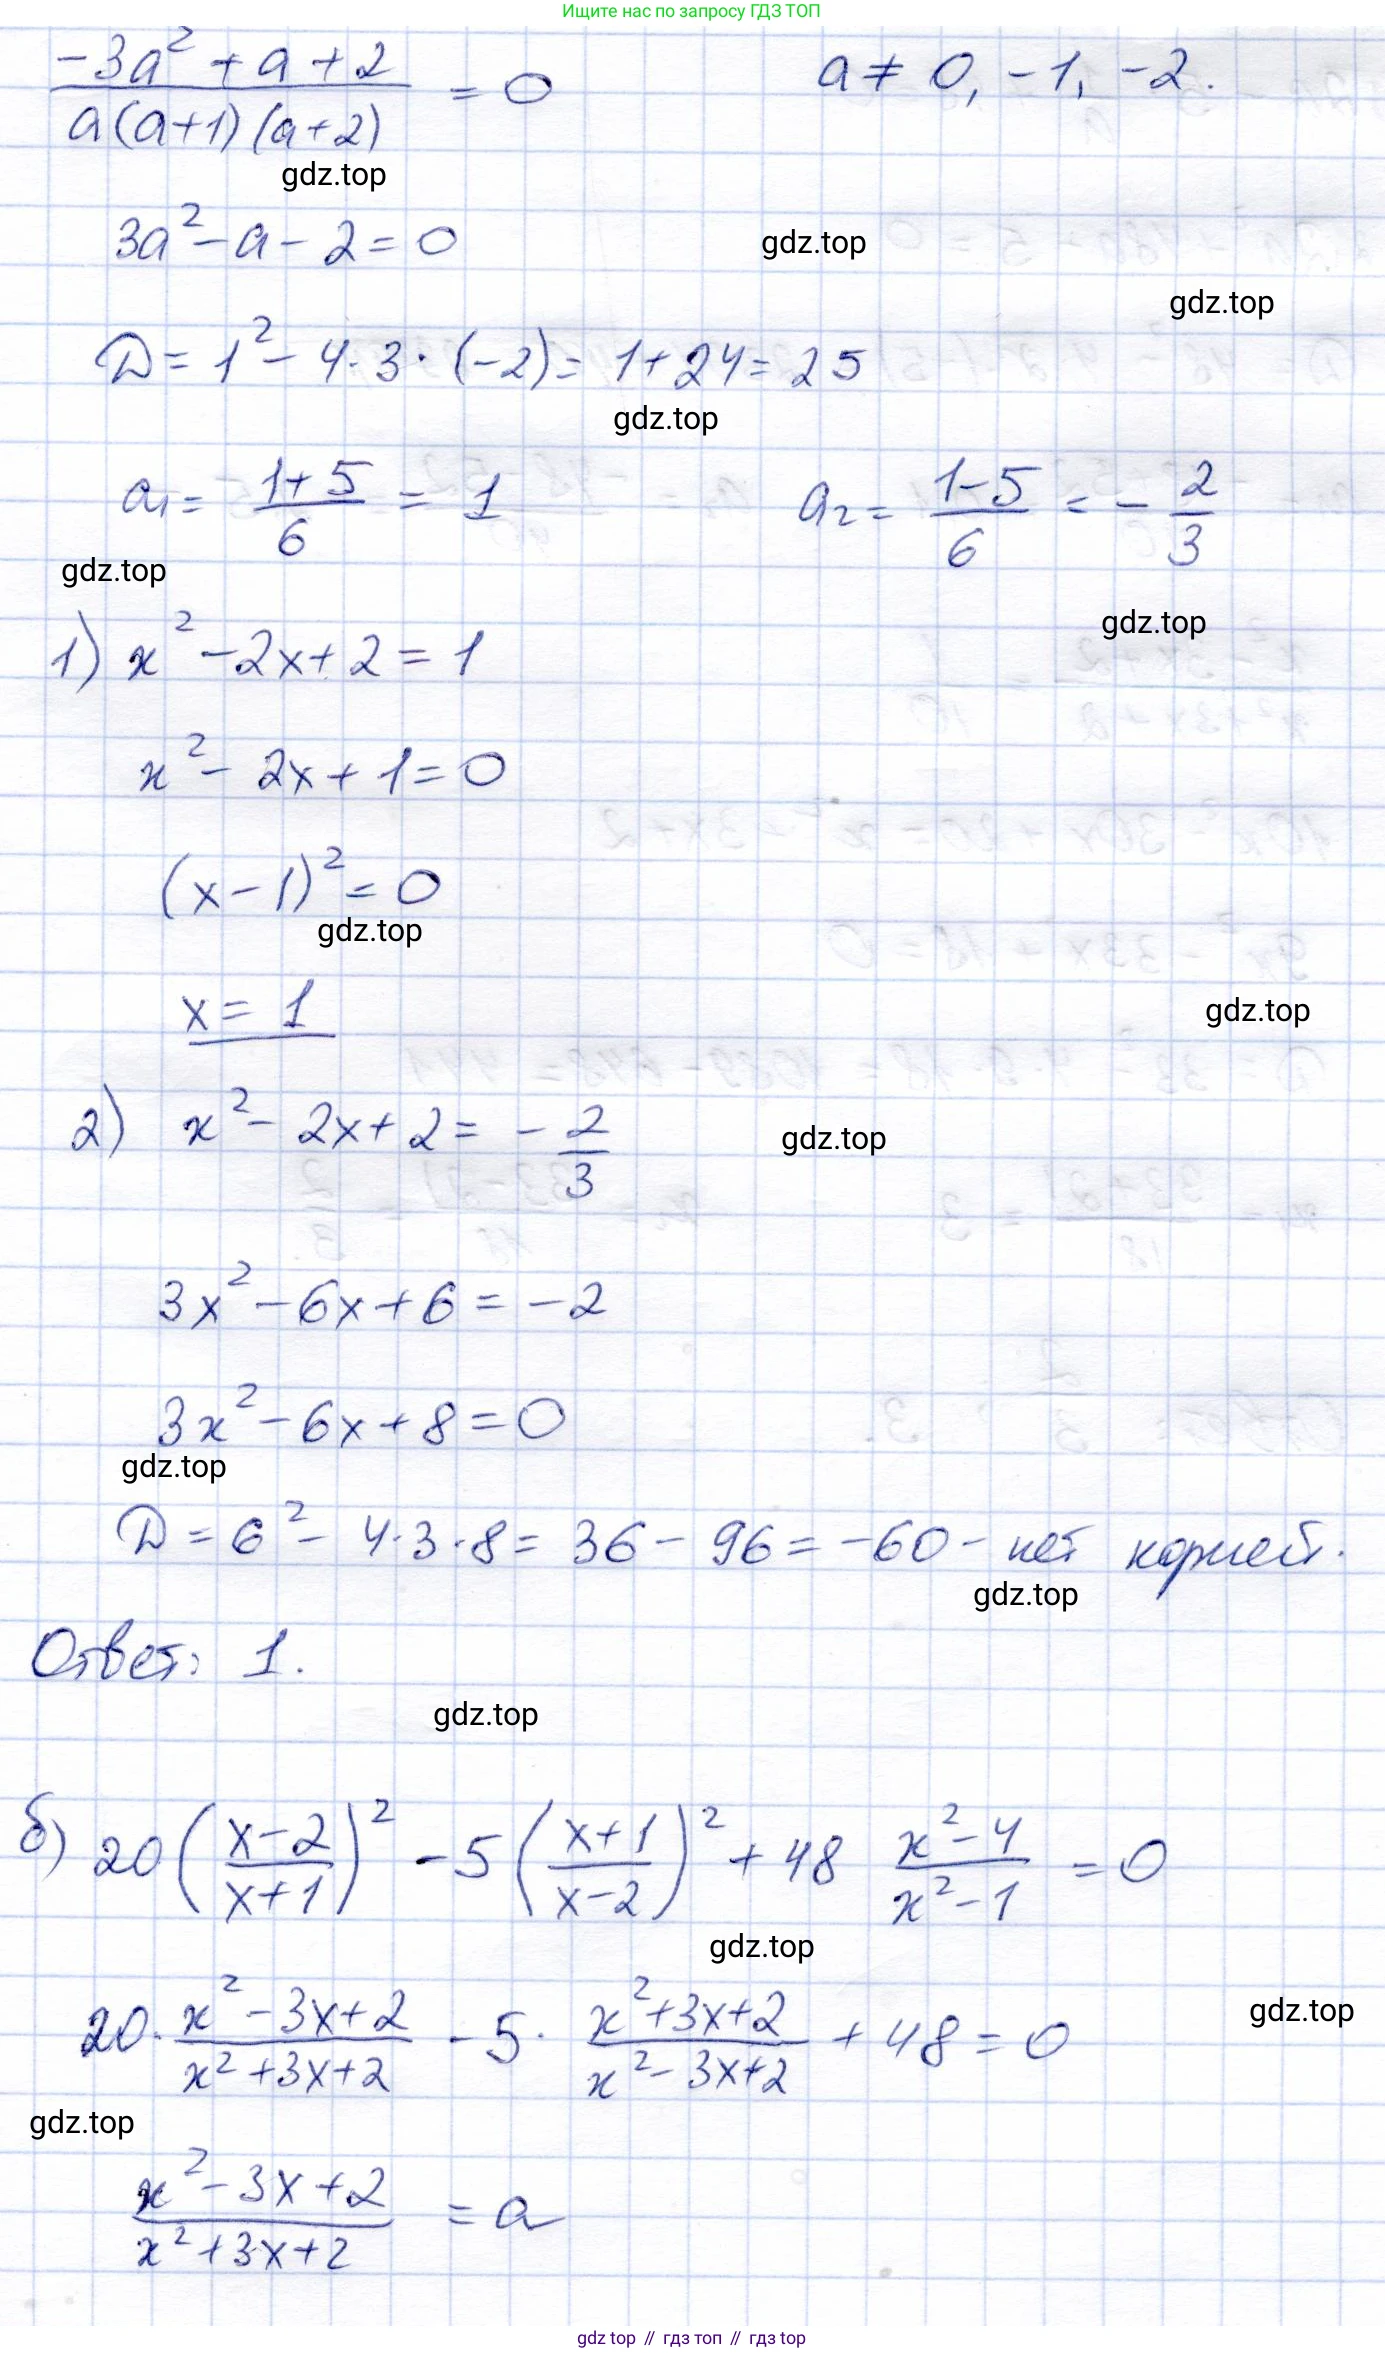 Ищите нас по запросу ГДЗ ТОП
(-3a² + a + 2) / (a(a+1)(a+2)) = 0    a ≠ 0, -1, -2.
gdz.top
3a² - a - 2 = 0
gdz.top
gdz.top
D = 1² - 4·3·(-2) = 1 + 24 = 25
gdz.top
a₁ = (1+5)/6 = 1    a₂ = (1-5)/6 = -2/3
gdz.top
gdz.top
1) x² - 2x + 2 = 1
x² - 2x + 1 = 0
(x - 1)² = 0
gdz.top
x = 1
gdz.top
2) x² - 2x + 2 = -2/3
gdz.top
3x² - 6x + 6 = -2
3x² - 6x + 8 = 0
gdz.top
D = 6² - 4·3·8 = 36 - 96 = -60 - нет корней.
gdz.top
Ответ: 1.
gdz.top
б) 20((x-2)/(x+1))² - 5((x+1)/(x-2))² + 48 (x²-4)/(x²-1) = 0
gdz.top
20·(x²-3x+2)/(x²+3x+2) - 5·(x²+3x+2)/(x²-3x+2) + 48 = 0
gdz.top
gdz.top
(x²-3x+2)/(x²+3x+2) = a
gdz top // гдз топ // гдз top